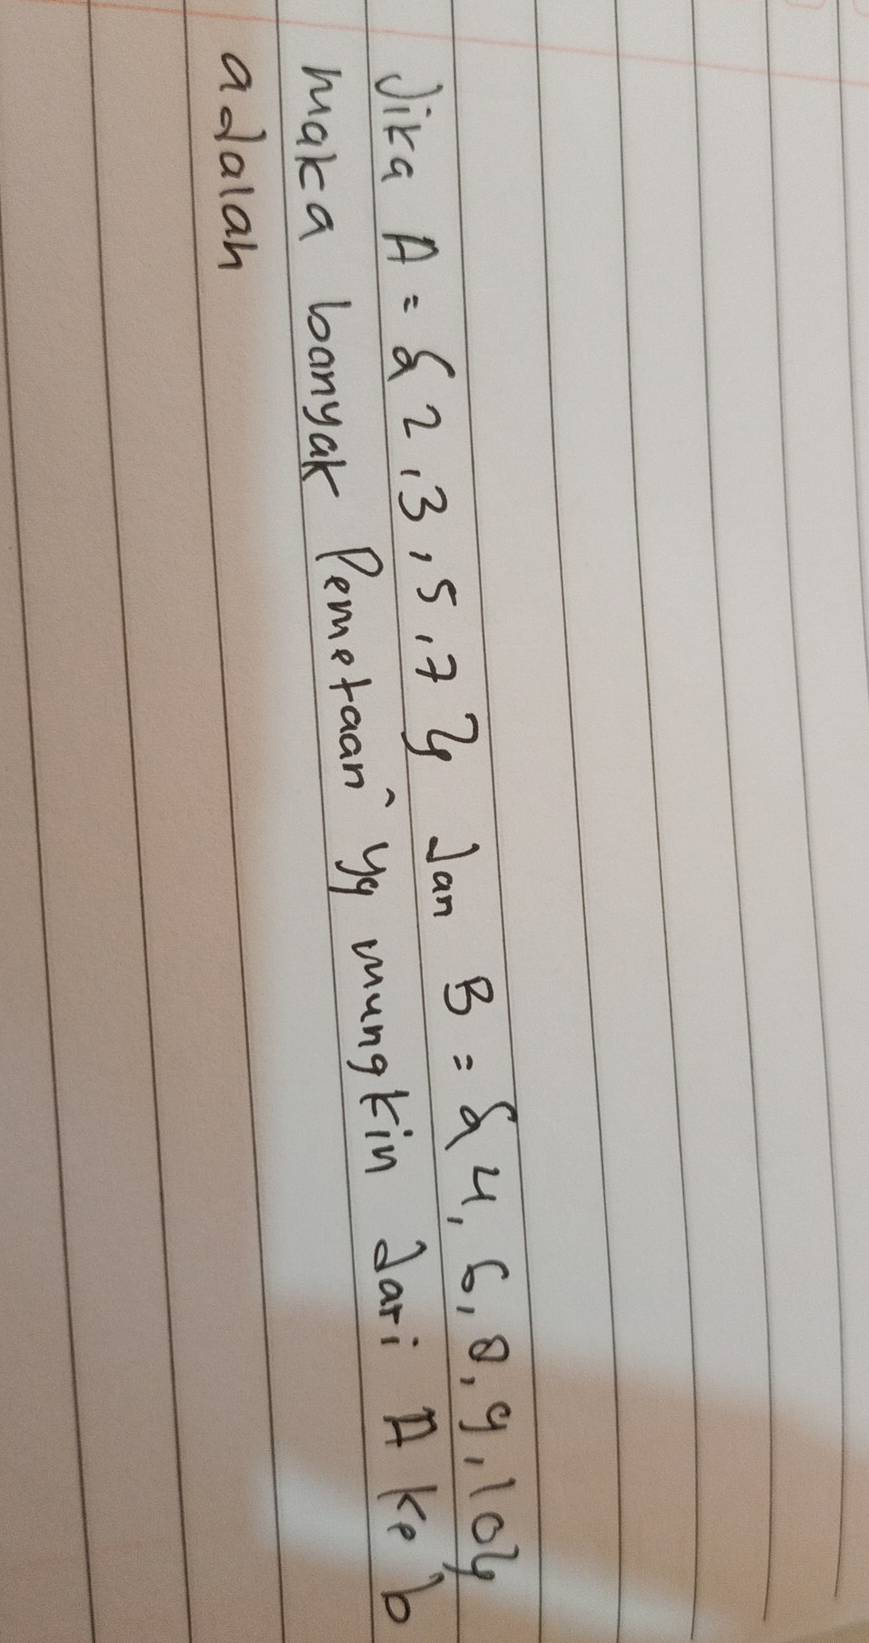 Jika A = { 2, 3, 5, 7 } dan B = { 4, 6, 8, 9, 10 }
maka banyak Pemetaan^ yg mungkin dari A ke b
adalah